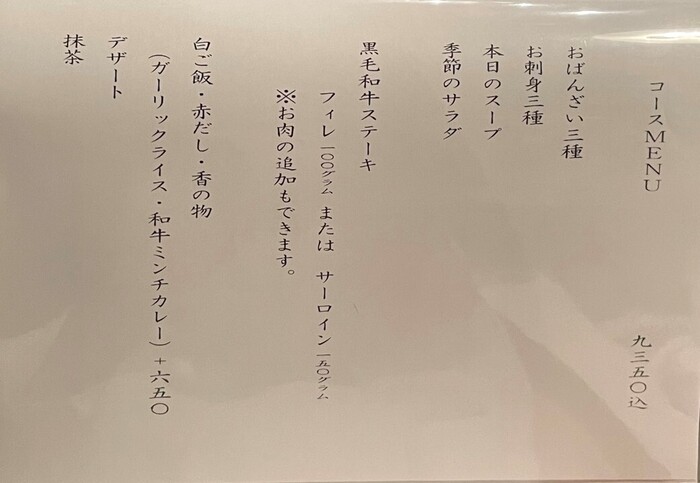 コースMENU
九三五〇込
おばんざい三種
お刺身三種
本日のスープ
季節のサラダ
黒毛和牛ステーキ
フィレ一〇〇グラム または サーロイン一五〇グラム
※お肉の追加もできます。
白ご飯・赤だし・香の物
(ガーリックライス・和牛ミンチカレー)+六五〇
デザート
抹茶